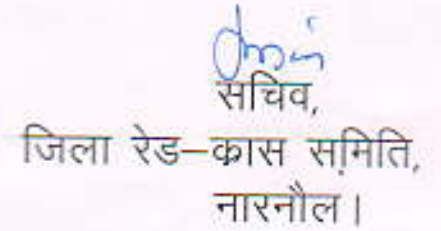 सचिव,
जिला रेड–कास समिति,
नारनौल।